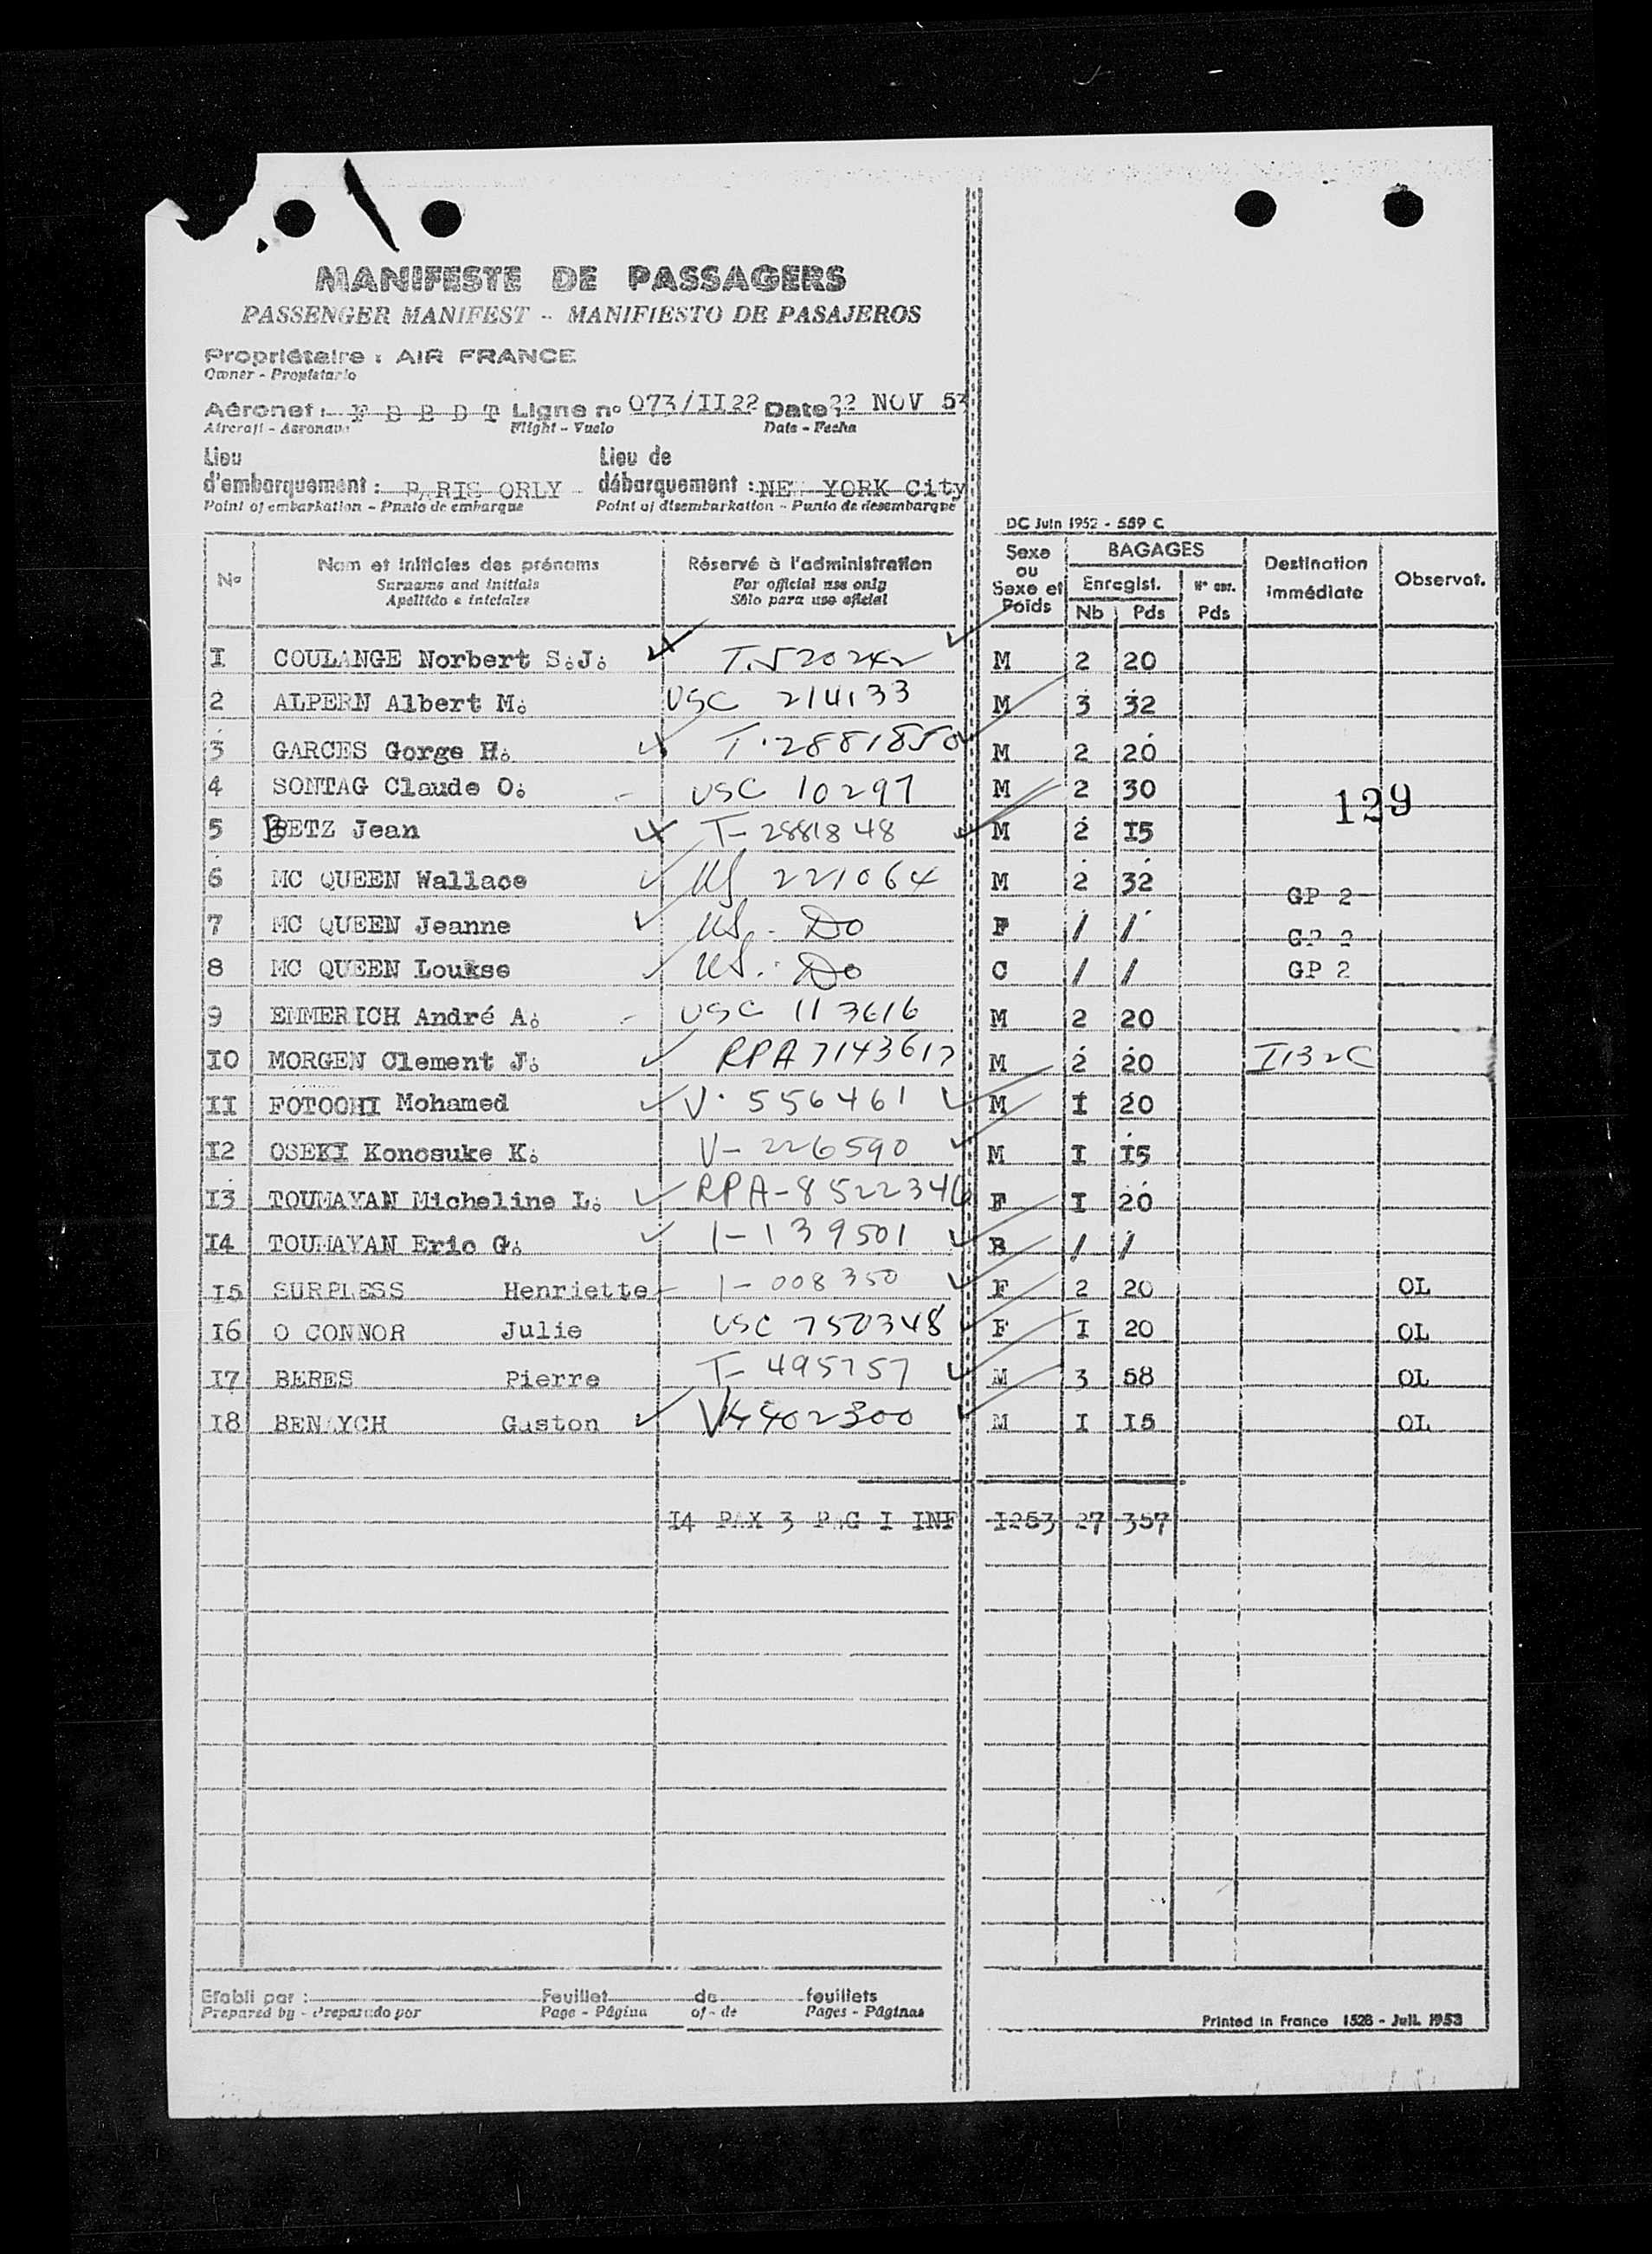 MANIFESTE DE PASSAGERS
PASSENGER MANIFEST - MANIFIESTO DE PASAJEROS
Propriétaire : AIR FRANCE
Owner - Propietario
Aéronef : F B B D T Ligne n° 073/II22 Date : 22 NOV 53
Aircraft - Aeronave Flight - Vuelo Date - Fecha
Lieu Lieu de
d'embarquement : PARIS ORLY débarquement : NE YORK City
Point of embarkation - Punto de embarque Point of disembarkation - Punto de desembarque
DC Juin 1952 - 559 C
N° Nom et initiales des prénoms Réservé à l'administration Sexe ou Sexe et Poids BAGAGES Destination immédiate Observat.
Surname and initials For official use only Enregist. N° enr.
Apellido e iniciales Sólo para uso oficial Nb Pds Pds
I COULANGE Norbert S.J. T.520242 M 2 20
2 ALPERN Albert M. USC 214133 M 3 32
3 GARCES Gorge H. T.2881850 M 2 20
4 SONTAG Claude O. USC 10297 M 2 30
129
5 BETZ Jean T-2881848 M 2 I5
6 MC QUEEN Wallace US 221064 M 2 32 GP 2
7 MC QUEEN Jeanne US. Do F / / GP 2
8 MC QUEEN Loukse US. Do C / / GP 2
9 EMMERICH André A. USC 113616 M 2 20
I0 MORGEN Clement J. RPA 7143617 M 2 20 I132C
II FOTOOHI Mohamed V. 556461 M I 20
I2 OSEKI Konosuke K. V-226590 M I I5
I3 TOUMAYAN Micheline L. RPA-8522346 F I 20
I4 TOUMAYAN Eric G. 1-139501 B / /
I5 SURPLESS Henriette 1-008350 F 2 20 OL
I6 O CONNOR Julie USC 750348 F I 20 OL
I7 BERES Pierre T-495757 M 3 58 OL
I8 BENAYCH Gaston 402300 M I I5 OL
I4 PAX 3 PAG I INF I253 27 357
Etabli par : Feuillet de feuillets
Prepared by - Preparado por Page - Página of - de Pages - Páginas
Printed in France 1528 - Juil. 1953